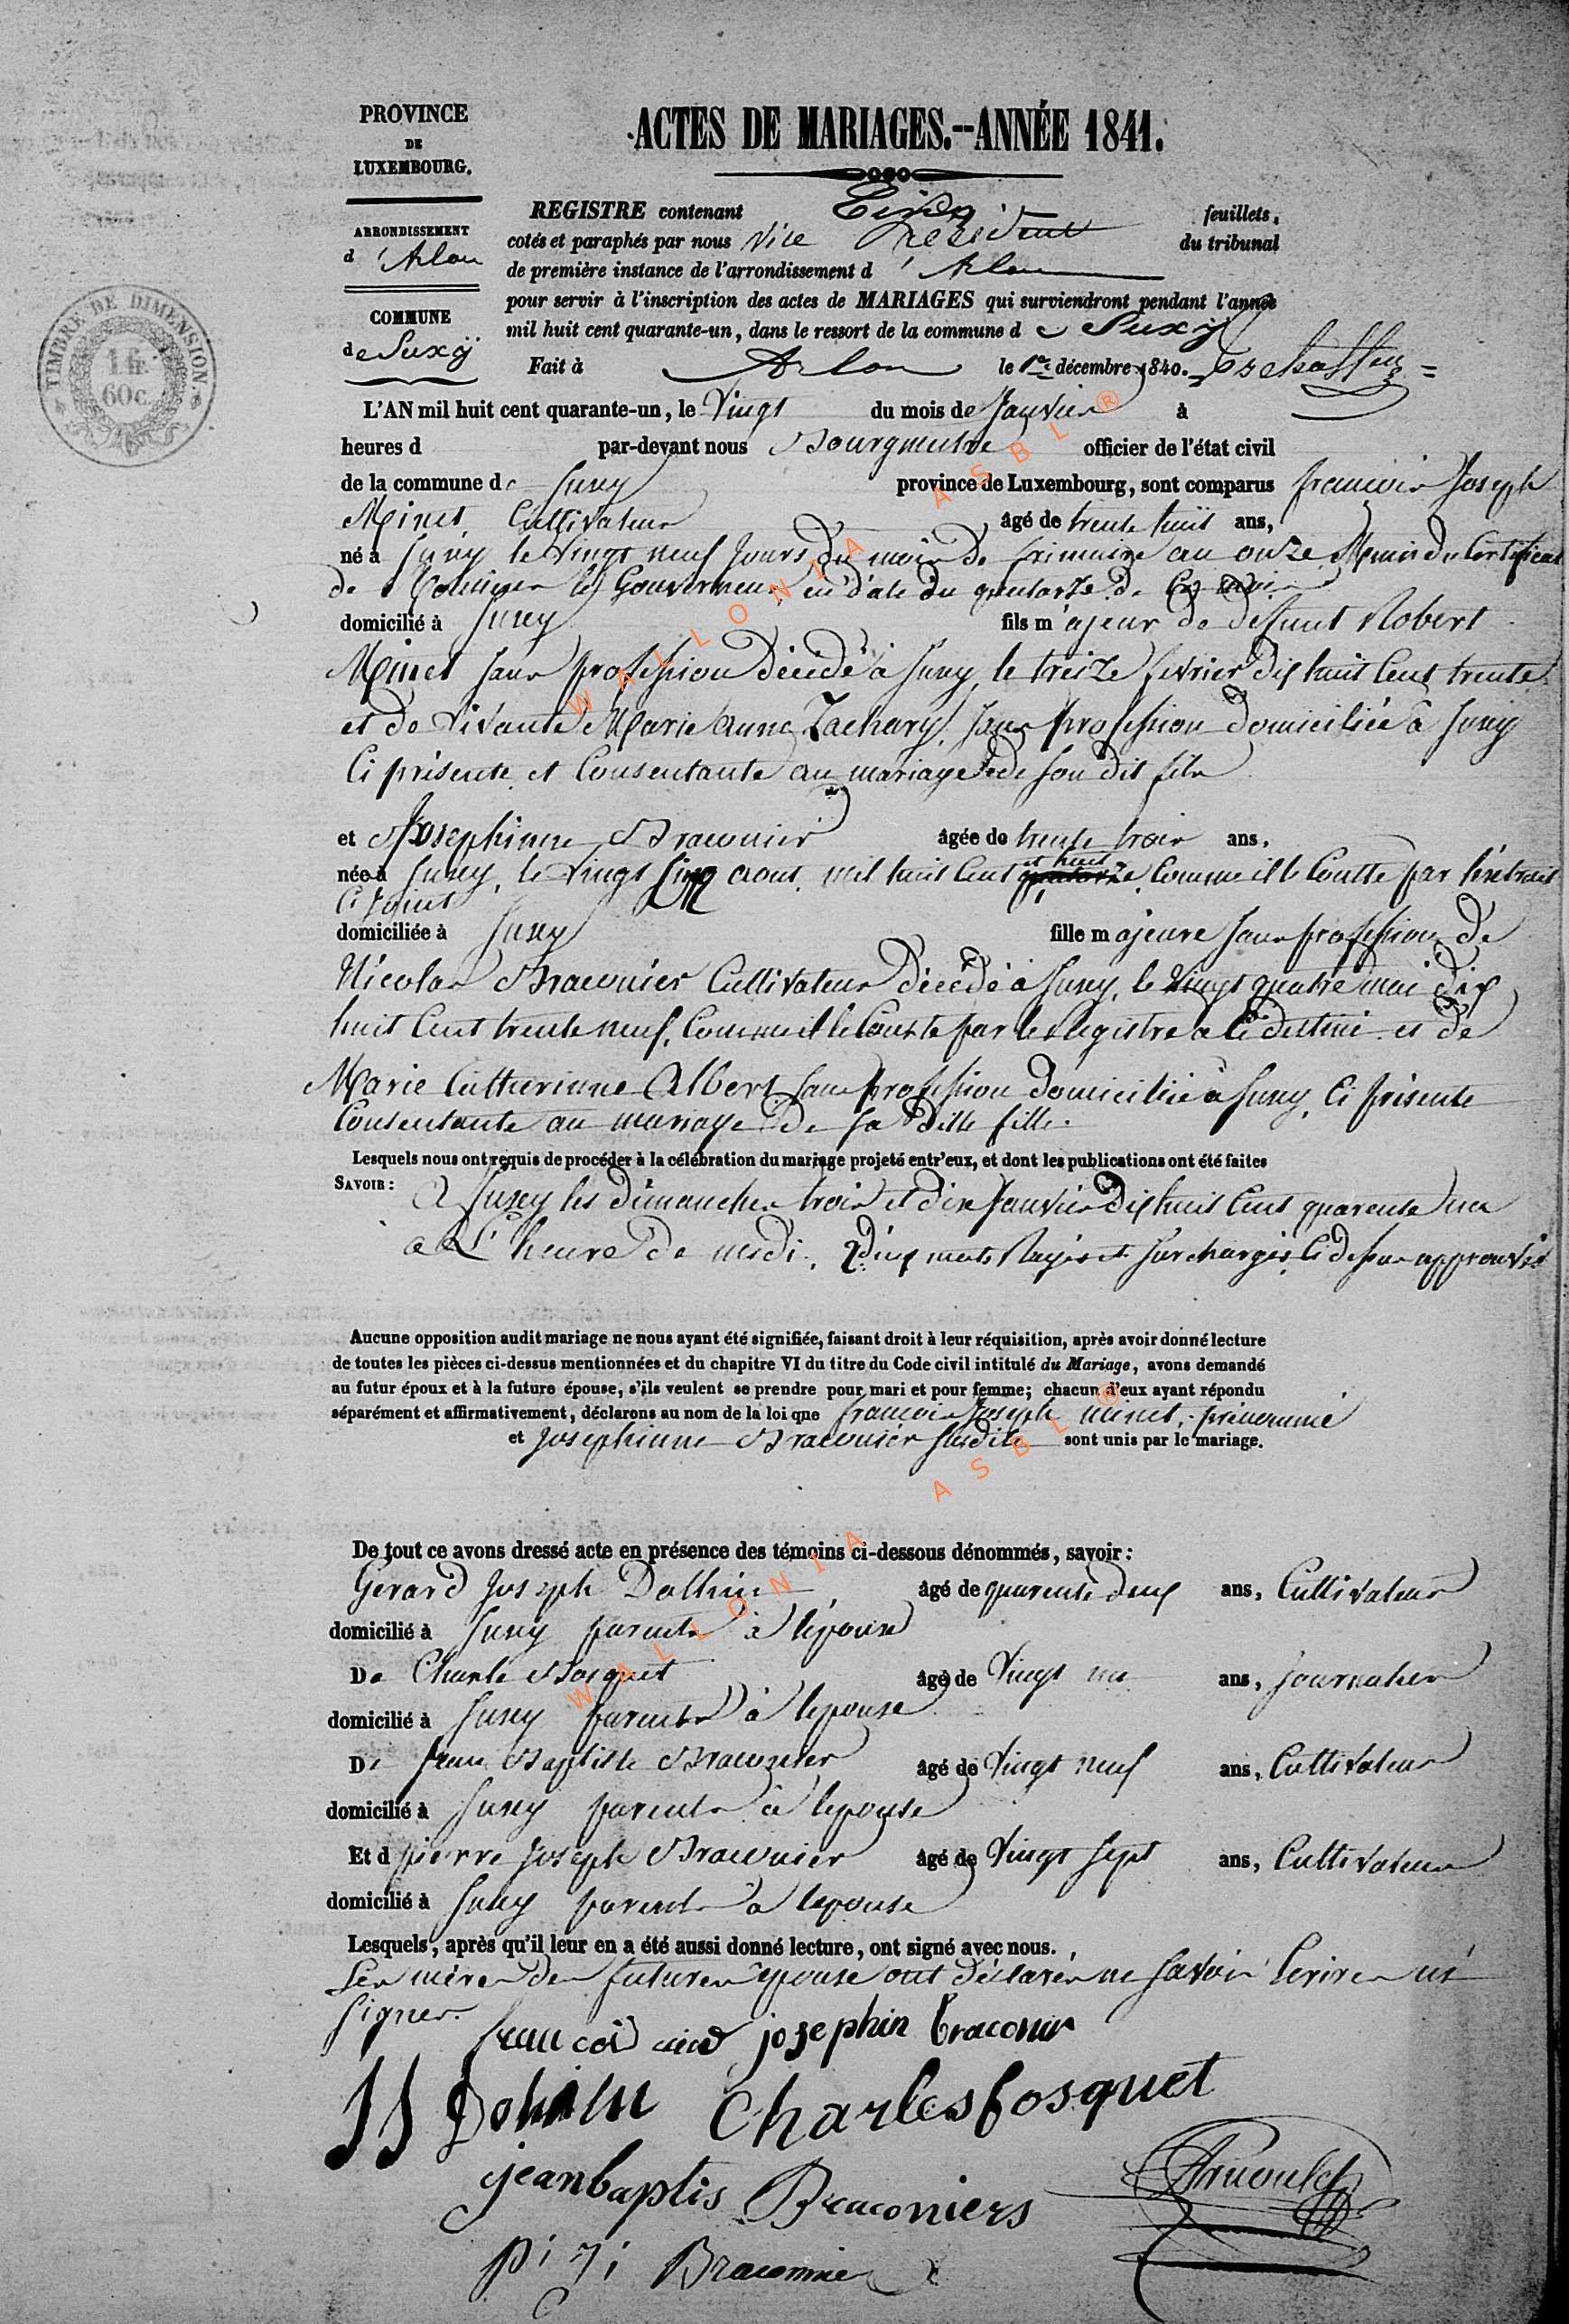 PROVINCE
DE
LUXEMBOURG.
ARRONDISSEMENT
d'Arlon
COMMUNE
de Suxÿ
TIMBRE DE DIMENSION.
1 fr.
60 c.
ACTES DE MARIAGES.--ANNÉE 1841.
REGISTRE contenant feuillets,
cotés et paraphés par nous Vice Président du tribunal
de première instance de l'arrondissement d'Arlon
pour servir à l'inscription des actes de MARIAGES qui surviendront pendant l'année
mil huit cent quarante-un, dans le ressort de la commune de Suxÿ
Fait à Arlon le 1er décembre 1840.
L'AN mil huit cent quarante-un, le Vingt du mois de Janvier à
heures d par-devant nous Bourgmestre officier de l'état civil
de la commune de Suxy province de Luxembourg, sont comparus francois Joseph
Minet Cultivateur âgé de trente huit ans,
né à Suxy le Vingt neuf Jours du mois de frimaire an onze Munis du Certificat
de Monsieur le Gouverneur en date du quatorze de Ce mois
domicilié à Suxy fils majeur de defunt Robert
Minet sans profession décédé à Suxy, le treize fevrier dix huit Cent trente
et de Vivante Marie anne Zachary, sans profession domiciliée à Suxy
Ci présente et Consentante au mariage de son dit fils
et Josephinne Braconnier âgée de trente trois ans.
née à Suxy, le Vingt Cinq aout mil huit Cent et huit quatorze Comme il le Conste par l'extrait
Ci Joint
domiciliée à Suxy fille majeure sans profession de
Nicolas Braconier Cultivateur décédé à Suxy, le Vingt quatre mai dix
huit Cent trente neuf, Comme il le Conste par le Registre a Ce destiné et de
Marie Catherinne Albert sans profession domiciliée à Suxy, Ci présente
Consentante au mariage de sa ditte fille.
Lesquels nous ont requis de procéder à la célébration du mariage projeté entr'eux, et dont les publications ont été faites
SAVOIR : A Suxey les dimanches trois et dix Janvier dix huit Cent quarente un
a L'heure de midi, deux mots Rayés et surchargés Ci dessus approuvés
Aucune opposition audit mariage ne nous ayant été signifiée, faisant droit à leur réquisition, après avoir donné lecture
de toutes les pièces ci-dessus mentionnées et du chapitre VI du titre du Code civil intitulé du Mariage, avons demandé
au futur époux et à la future épouse, s'ils veulent se prendre pour mari et pour femme; chacun d'eux ayant répondu
séparément et affirmativement, déclarons au nom de la loi que francois Joseph minet, prénommé
et Josephinne Braconier susdite sont unis par le mariage.
De tout ce avons dressé acte en présence des témoins ci-dessous dénommés, savoir :
Gérard Joseph âgé de quarente deux ans, Cultivateur
domicilié à Suxy parents à l'épouse
De Charle Bosquet âgé de Vingt un ans, journalier
domicilié à Suxy parents à lépouse
De Jean Baptiste Braconier âgé de Vingt neuf ans, Cultivateur
domicilié à Suxy parents à lépouse
Et d pierre Joseph Braconier âgé de Vingt sept ans, Cultivateur
domicilié à Suxy parents à lépouse
Lesquels, après qu'il leur en a été aussi donné lecture, ont signé avec nous.
Les mères des futures épouse ont déclarés ne savoir Ecrire ni
signer.
josephin braconir
Charles bosquet
jeanbaptis Braconiers
pi ji Braconnier
WALLONIA ASBL ®
WALLONIA ASBL ®